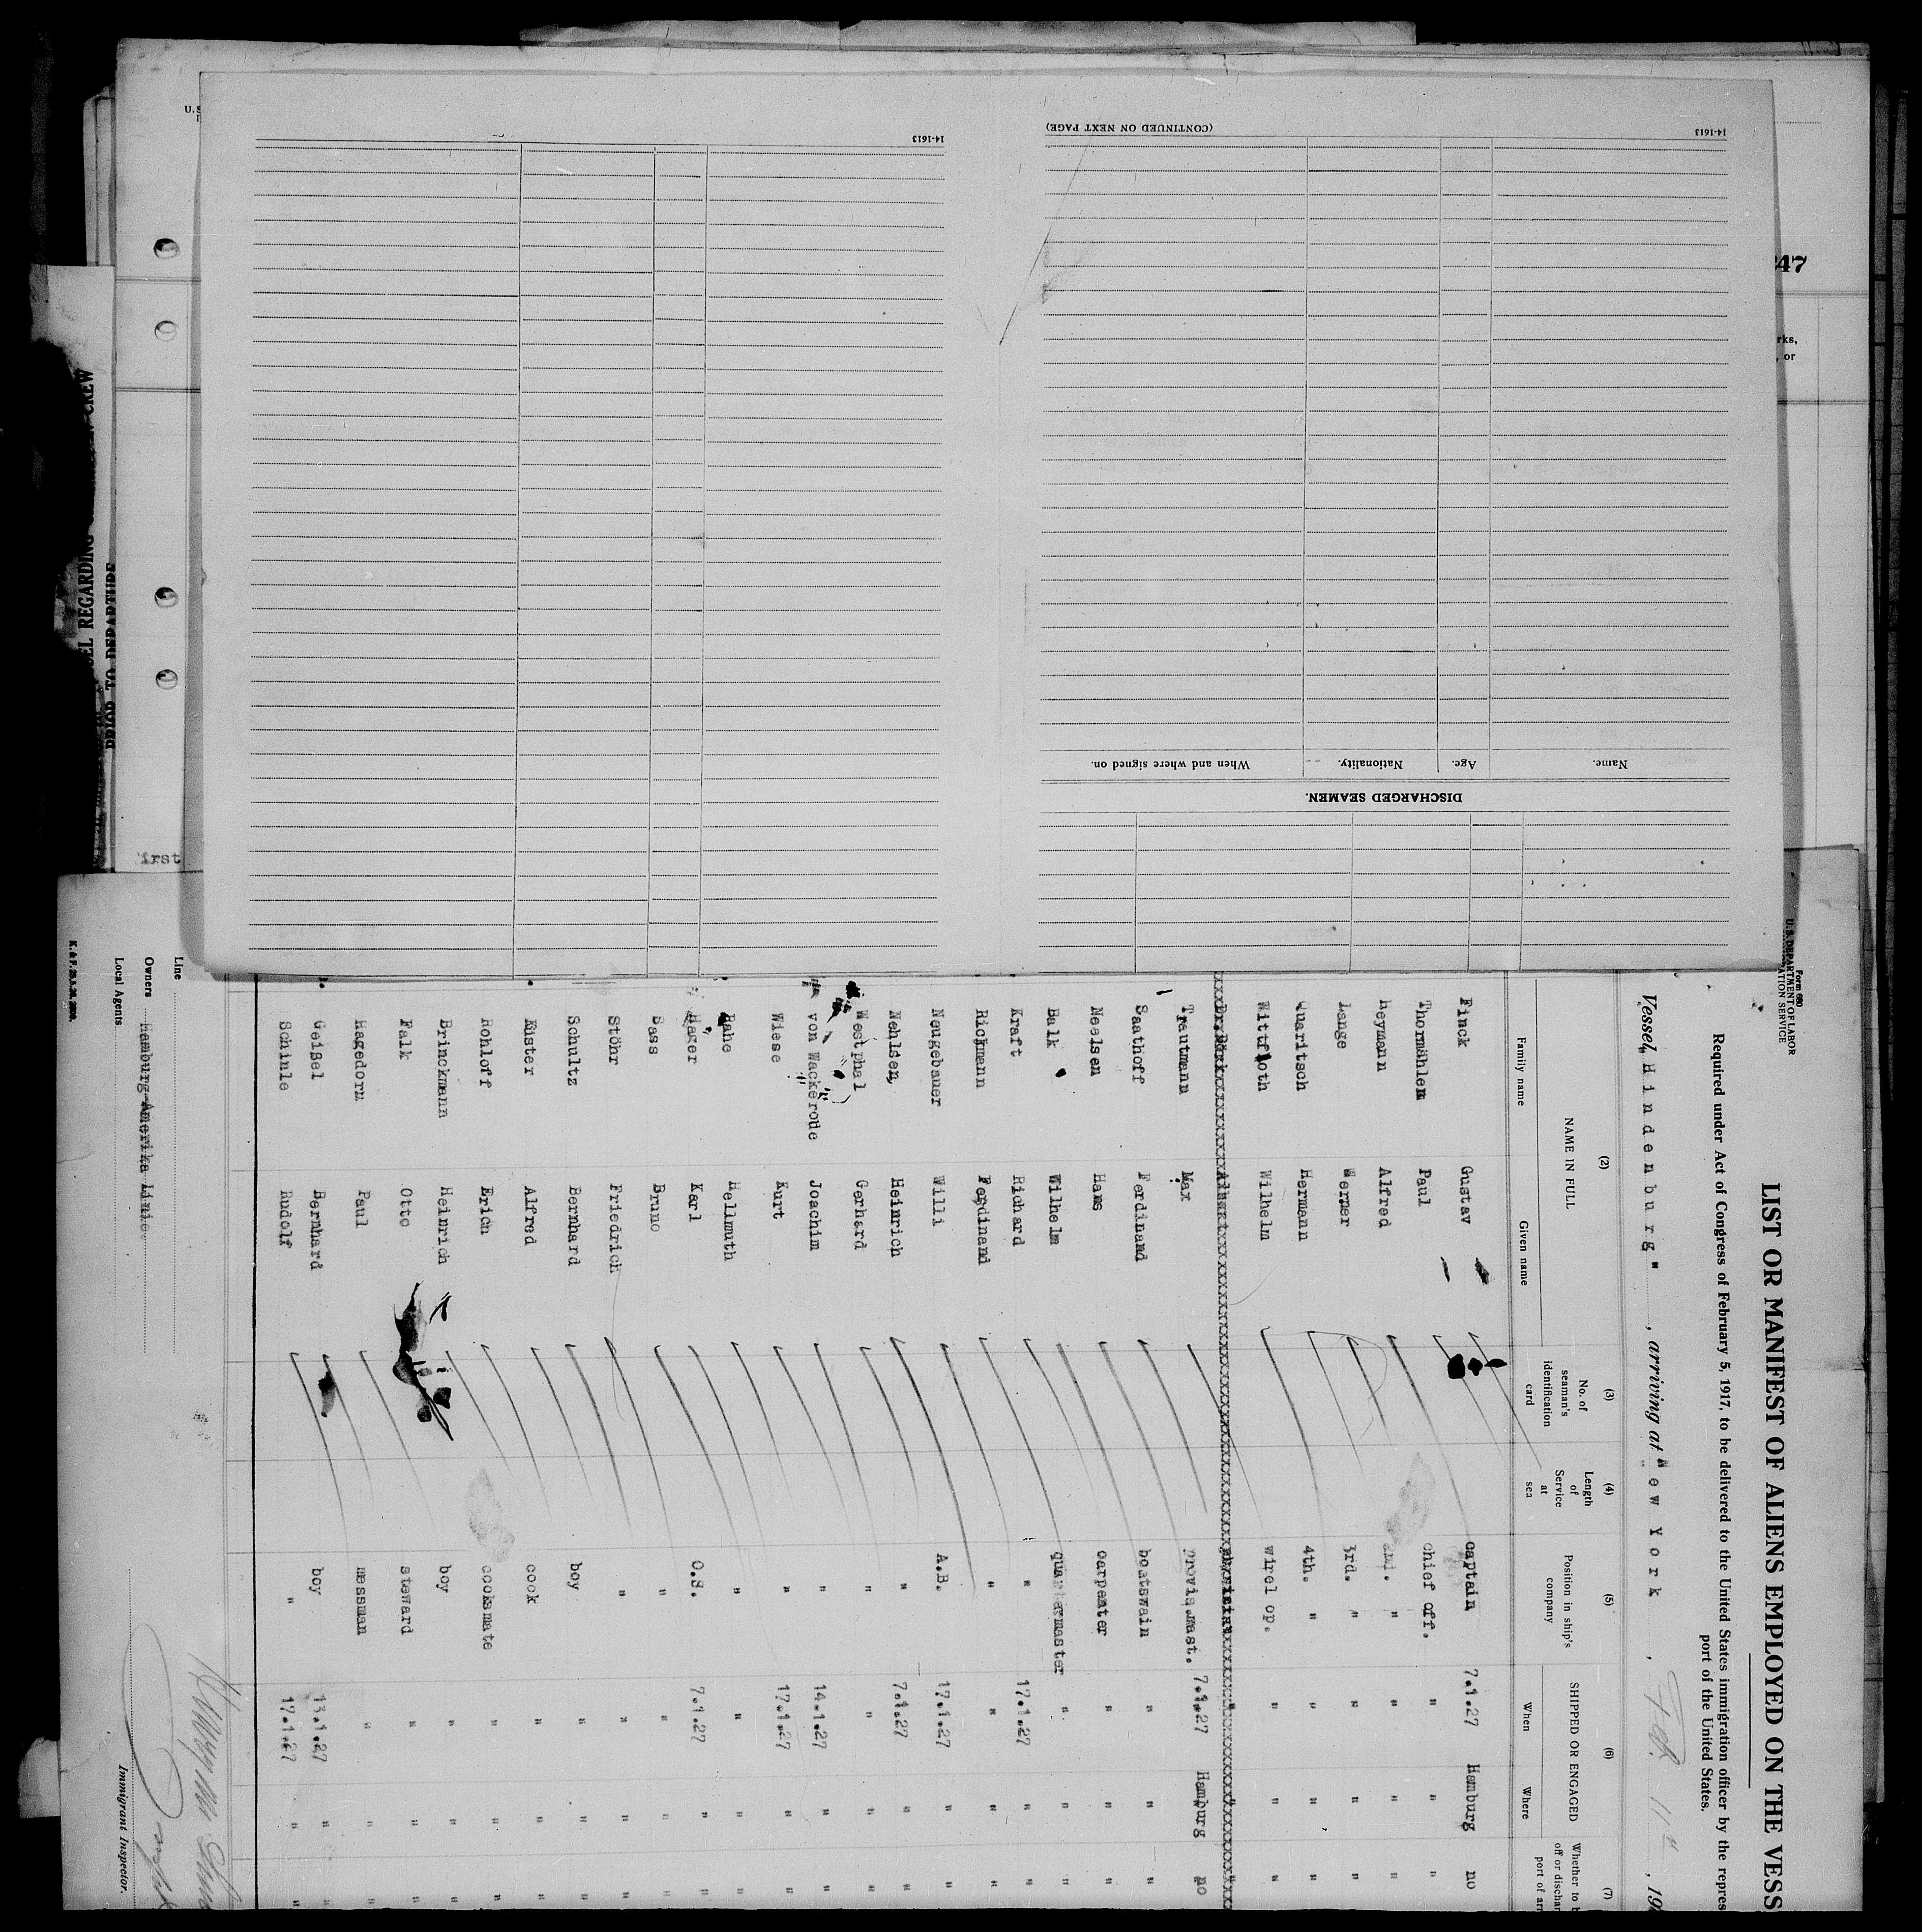 14-1613
(CONTINUED ON NEXT PAGE)
14-1613
When and where signed on.
Nationality.
Age.
Name.
DISCHARGED SEAMEN.
47
rks,
, or
irst
SEL REGARDING
CREW
PRIOR TO DEPARTURE
Form 680
U. S. DEPARTMENT OF LABOR
ATION SERVICE
LIST OR MANIFEST OF ALIENS EMPLOYED ON THE VESS
Required under Act of Congress of February 5, 1917, to be delivered to the United States immigration officer by the repres
port of the United States.
Vessel "Hindenburg" , arriving at New York , Feb. 11th , 19
(2) (3) (4) (5) (6) (7)
NAME IN FULL
Family name Given name
No. of seaman's identification card
Length of Service at sea
Position in ship's company
SHIPPED OR ENGAGED
When Where
Whether to b
off or dischar
port of arr
Finck Gustav captain 7.1.27 Hamburg no
Thormählen Paul chief off. " " "
Heymann Alfred 2nd. " " " "
Lange Werner 3rd. " " " "
Quaritsch Hermann 4th. " " " "
Wittfoth Wilhelm wirel op. " " "
Trautmann Max provis.mast. 7.1.27 Hamburg no
Saathoff Ferdinand boatswain " " "
Neelsen Hans carpenter " " "
Balk Wilhelm quartermaster " " "
Kraft Richard " 17.1.27 " "
Richmann Ferdinand " " " "
Neugebauer Willi A.B. 17.1.27 " "
Nehlsen Heinrich " 7.1.27 " "
Westphal Gerhard " " " "
von Wackerode Joachim " 14.1.27 " "
Wiese Kurt " 17.1.27 " "
Rahe Hellmuth " " " "
Hager Karl O.S. 7.1.27 " "
Sass Bruno " " " "
Stöhr Friedrich " " " "
Schultz Bernhard boy " " "
Küster Alfred cock " " "
Rohloff Erich cooksmate " " "
Brinckmann Heinrich boy " " "
Falk Otto steward " " "
Hagedorn Paul messman " " "
Geißel Bernhard boy 13.1.27 " "
Schinle Rudolf " 17.1.27 " "
Line
Owners Hamburg-Amerika Linie
Local Agents
Immigrant Inspector.